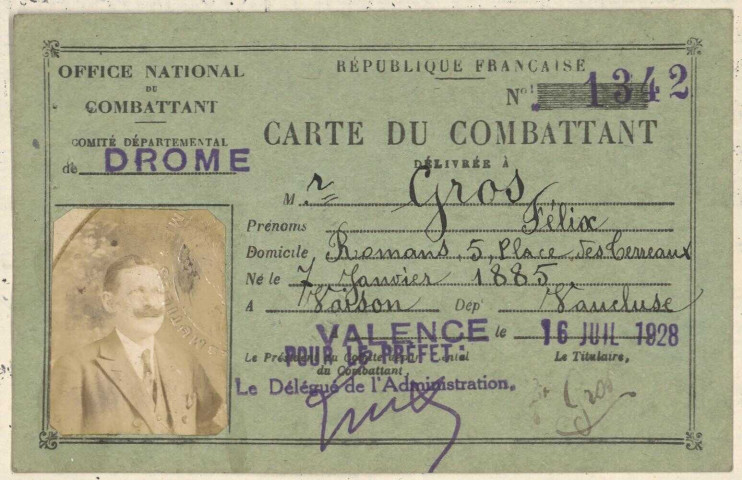 OFFICE NATIONAL
DU
COMBATTANT
COMITÉ DÉPARTEMENTAL
de DROME
RÉPUBLIQUE FRANÇAISE
No 1342
CARTE DU COMBATTANT
DÉLIVRÉE À
M. r Gros
Prénoms Félix
Domicile Romans, 5, Place des Terreaux
Né le 7 Janvier 1885
A Vaison Dep' Vaucluse
VALENCE le 16 JUIL 1928
Le Président du Comité Départemental
POUR LE PRÉFET:
du Combattant
Le Titulaire,
Le Délégué de l'Administration,
Gros